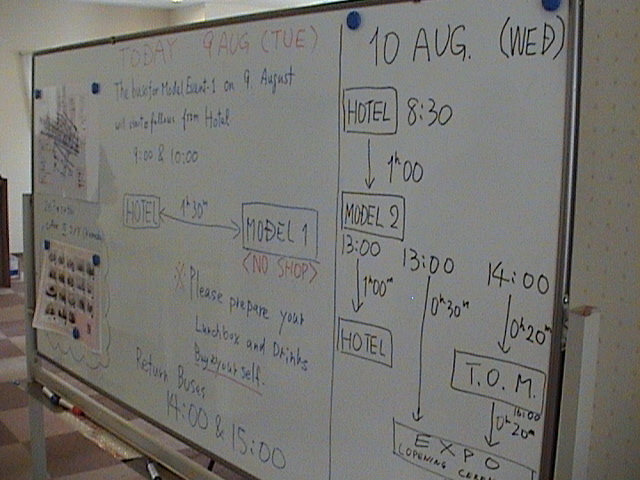 TODAY 9 AUG (TUE)
The bus for Model Event-1 on 9 August
will as follows from Hotel
9:00 & 10:00
HOTEL
1h30m
MODEL 1
<NO SHOP>
※ Please prepare your
Lunchbox and Drinks
Buy yourself.
Return Buses
14:00 & 15:00
10 AUG. (WED)
HOTEL 8:30
1h00
MODEL 2
13:00 13:00 14:00
1h00m 0h30m 0h20m
HOTEL
T.O.M.
16:00
0h20m
EXPO
(OPENING